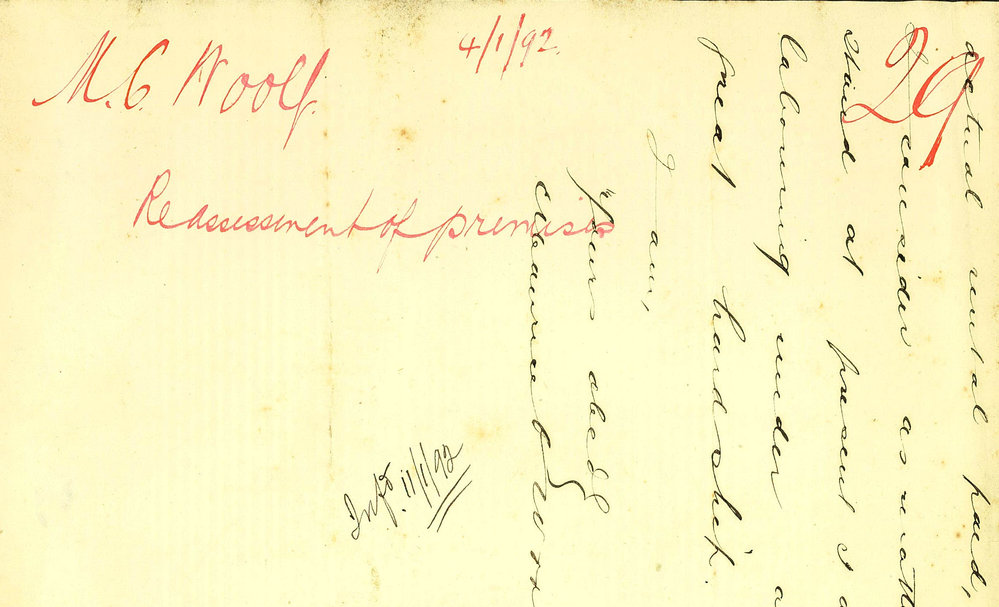 M. C. Woolf.
4/1/92.
29
Reassessment of premises
Infd. 11/1/92
actual rental paid,
I consider as matt
stand at present I a
labouring under a
great hardship.
I am,
Yours obedt
Maurice C Woo